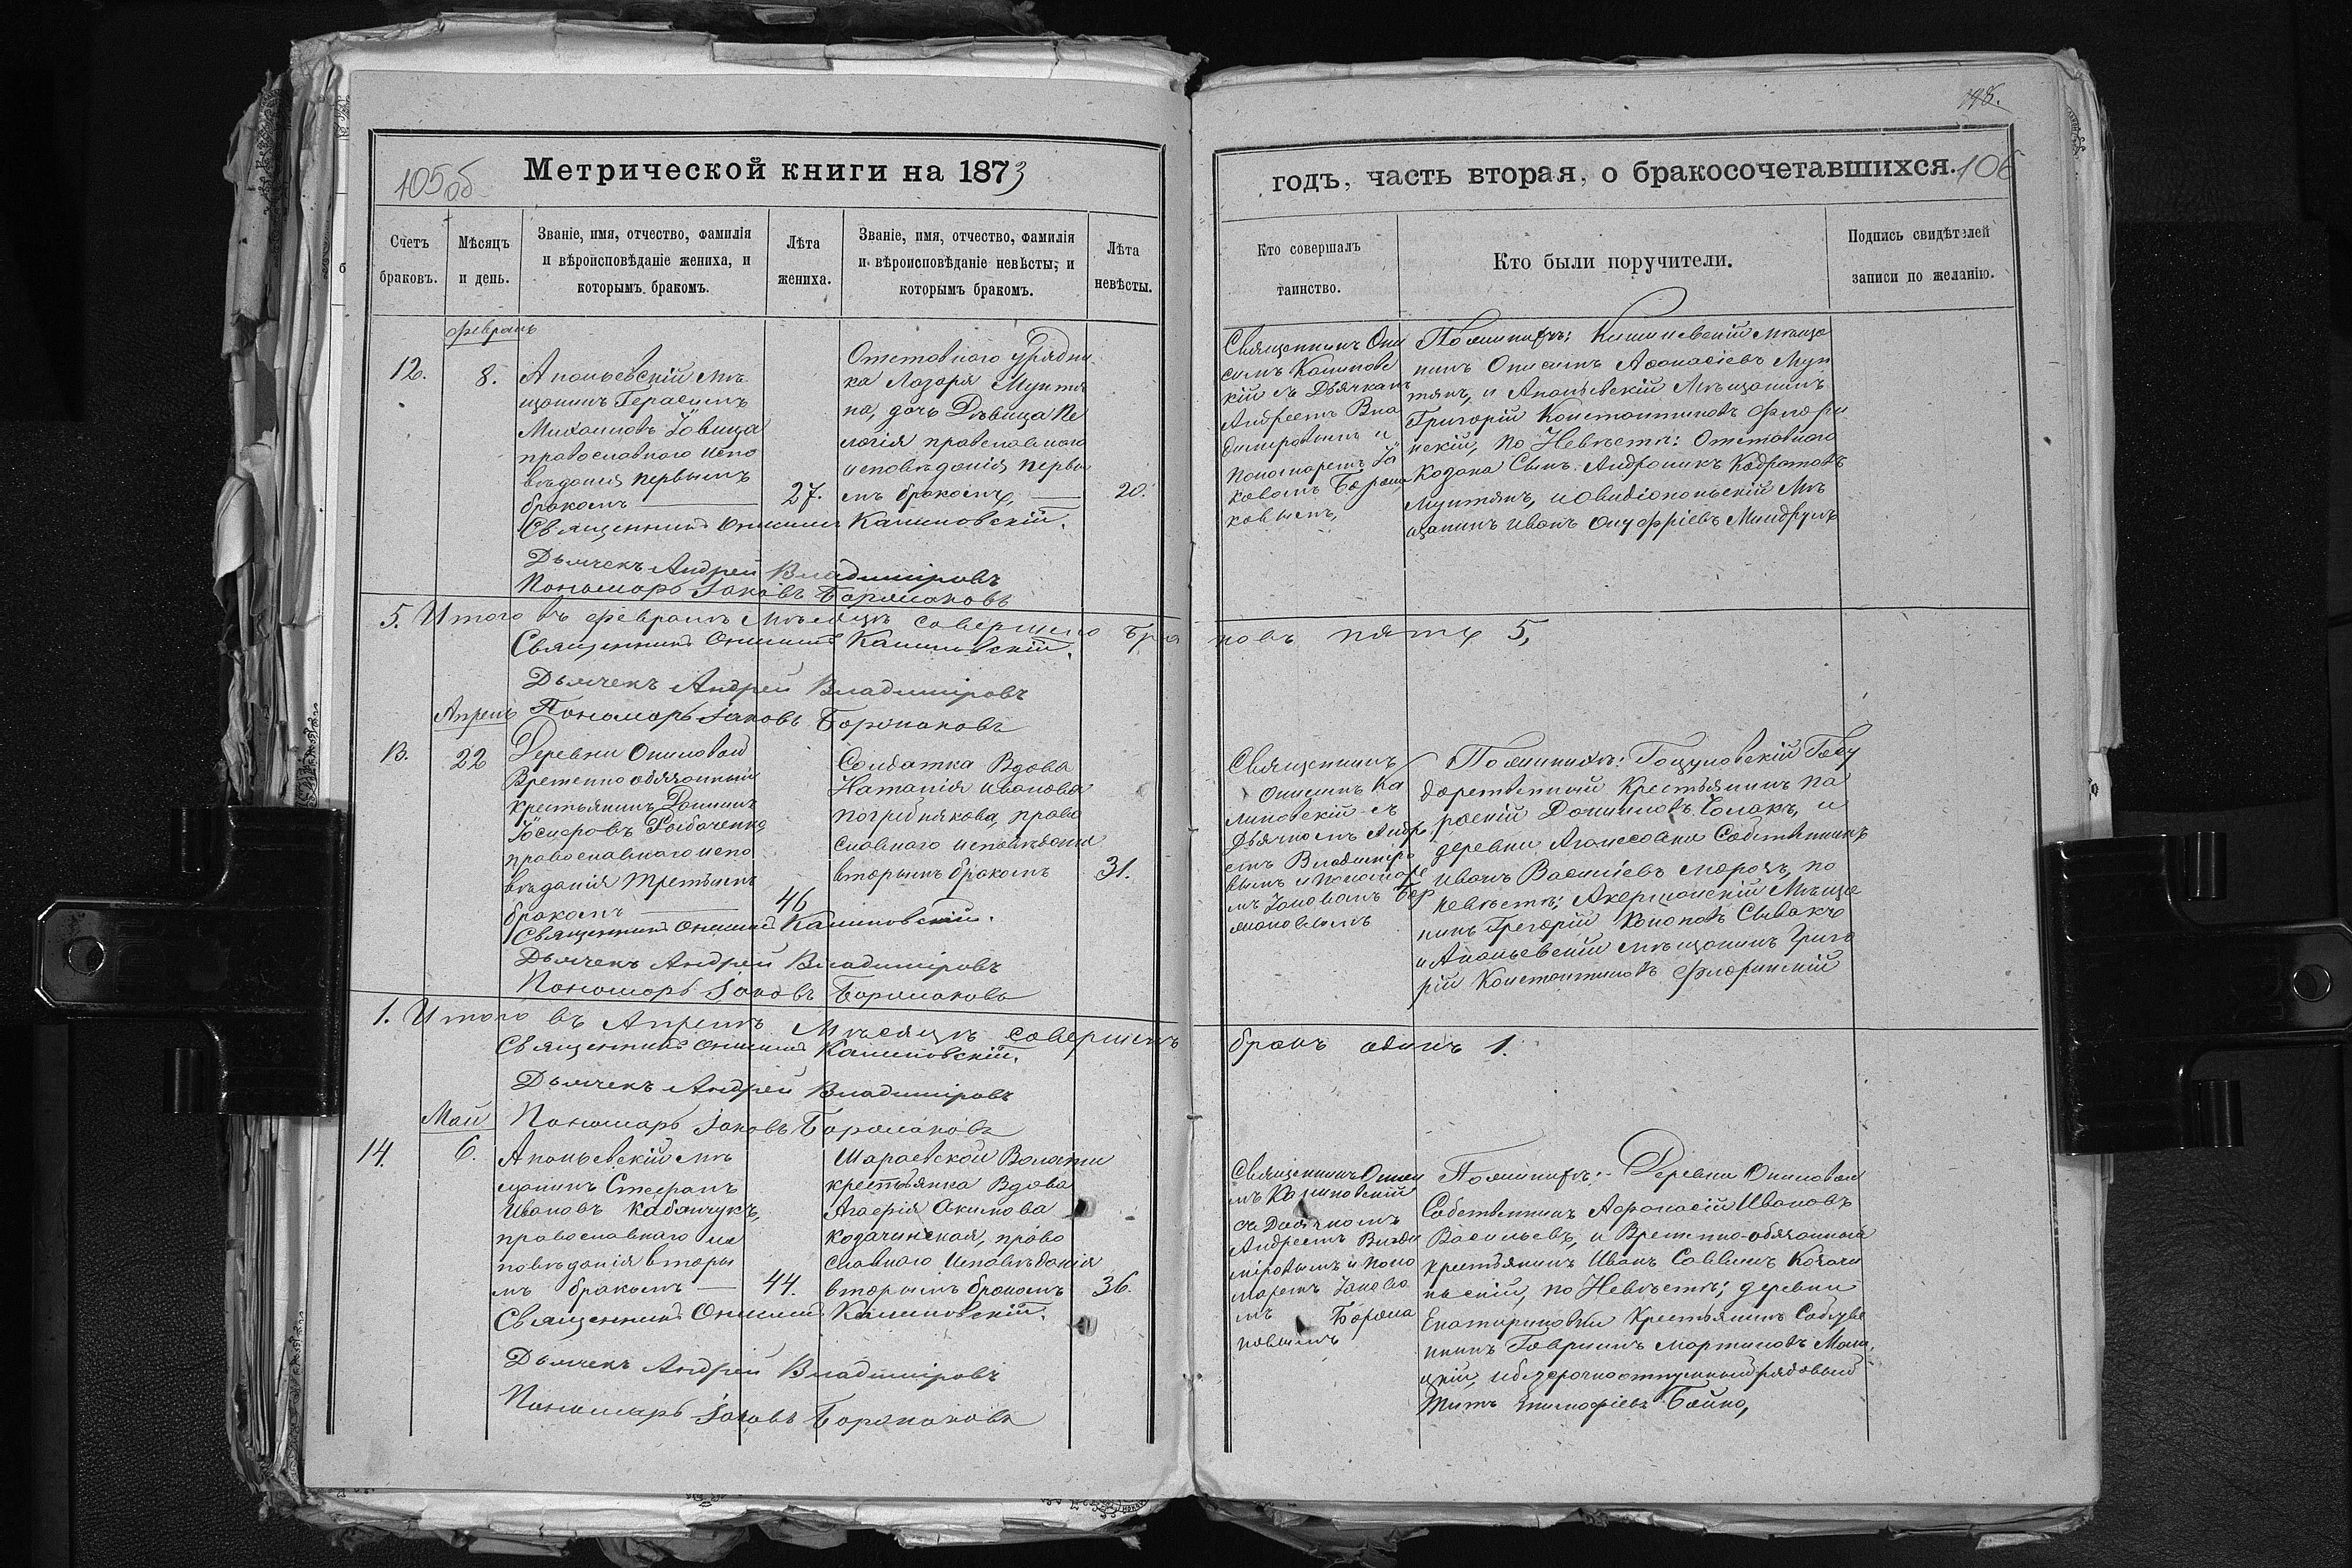 105 об
Метрической книги на 1873
Счетъ
браковъ.
Мѣсяцъ
и день.
Званіе, имя, отчество, фамилія
и вѣроисповѣданіе жениха, и
которымъ бракомъ.
Лѣта
жениха.
Званіе, имя, отчество, фамилія
и вѣроисповѣданіе невѣсты; и
которымъ бракомъ.
Лѣта
невѣсты.
Февраль
12.
8.
Ананьевскій мѣ
щанинъ Герасимъ
Михаиловъ Іовица
православнаго испо
вѣданія первымъ
бракомъ
27.
Отставного Урядни
ка Лазаря Мунтя
на, дочь Дѣвица Пе
лагія православнаго
исповѣданія первы
мъ бракомъ,
20.
Священникъ Онисимъ Калиновскій.
Дьячекъ Андрей Владиміровъ
Пономарь Іаковъ Бармаковъ
5. Итого въ Февралѣ мѣсяцѣ совершено бра
Священникъ Онисимъ Калиновскій.
Дьячекъ Андрей Владиміровъ
Пономарь Іаковъ Бармаковъ
Апрель
13.
22
Деревни Ониловой
Временно обязанный
крестьянинъ Даніилъ
православнаго испо
вѣданія третьимъ
бракомъ
46
Солдатка Вдова
Наталія Иванова
погребнякова, право
славнаго исповѣданія
вторымъ бракомъ
31.
Священникъ Онисимъ Калиновскій.
Дьячекъ Андрей Владиміровъ
Пономарь Іаковъ Бармаковъ
1. Итого въ Апрелѣ Мѣсяцѣ совершенъ
Священникъ Онисимъ Калиновскій.
Дьячекъ Андрей Владиміровъ
Пономарь Іаковъ Бармаковъ
Май
14.
6.
Ананьевскій мѣ
щанинъ Стефанъ
Ивановъ Кабанчукъ,
православнаго ис
повѣданія вторы
мъ бракомъ
44.
крестьянка Вдова
Агафія Акимова
козачинская, право
славнаго исповѣданія
вторымъ бракомъ
36.
Священникъ Онисимъ Калиновскій.
Дьячекъ Андрей Владиміровъ
Пономарь Іаковъ Бармаковъ
106
годъ, часть вторая, о бракосочетавшихся.
Кто совершалъ
таинство.
Кто были поручители.
Подпись свидѣтелей
записи по желанію.
Священникъ Они
симъ Калиновс
кій съ Дьячкомъ
Андреемъ Вла
диміровымъ и
Пономаремъ Іа
ковомъ Барма
ковымъ,
По женихѣ: Кишиневскій мѣща
нинъ Онисимъ Афанасіевъ Мун
тянъ, и Ананьевскій Мѣщанинъ
Григорій Константиновъ Флори
нскій, по Невѣстѣ: Отставного
козака Сынъ Андроникъ
Мунтянъ, и Овидіопольскій Мѣ
щанинъ Иванъ Онуфріевъ Миндрулъ
ковъ пять 5,
Священникъ
Онисимъ Ка
линовскій съ
Дьячкомъ Андре
емъ Владиміро
вымъ и пономаре
мъ Іаковомъ Бар
маковымъ
По женихѣ: Госу
дарственный Крестьянинъ
Даниловъ и
деревни Собственникъ
Иванъ Васильевъ морозъ, по
невѣстѣ; Акерманскій Мѣща
нинъ Григорій Кононовъ
и Ананьевскій мѣщанинъ Григо
рій Константиновъ Флоринскій
бракъ одинъ 1.
Священникъ Ониси
мъ Калиновскій
съ Дьячкомъ
Андреемъ Влади
міровымъ и Поно
маремъ Іакова
мъ Барма
ковымъ
По женихѣ: Деревни Ониловой
Собственникъ Афанасій Ивановъ
Васильевъ, и Временно-обязанный
крестьянинъ Иванъ Саввинъ Козачи
нскій, по Невѣстѣ; деревни
Екатериновки Крестьянинъ Собстве
нникъ Гавріилъ Мартиновъ
и безсрочноотпускный рядовый
Титъ Бойко,